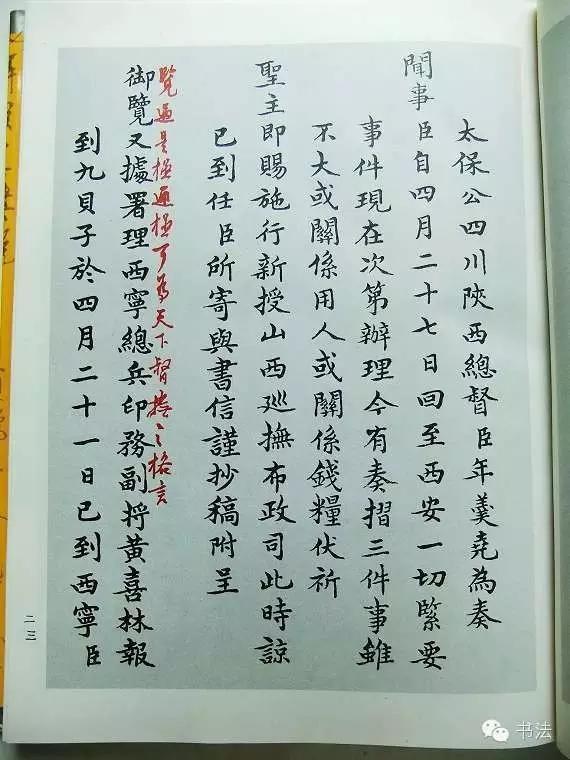 太保公四川陝西總督臣年羹堯為奏
聞事臣自四月二十七日回至西安一切緊要
事件現在次第辦理今有奏摺三件事雖
不大或關係用人或關係錢糧伏祈
聖主即賜施行新授山西巡撫布政司此時諒
已到任臣所寄與書信謹抄稿附呈
覽過是極通極可為天下督撫之格言
御覽又據署理西寧總兵印務副将黃喜林報
到九貝子於四月二十一日已到西寧臣
二三
书法